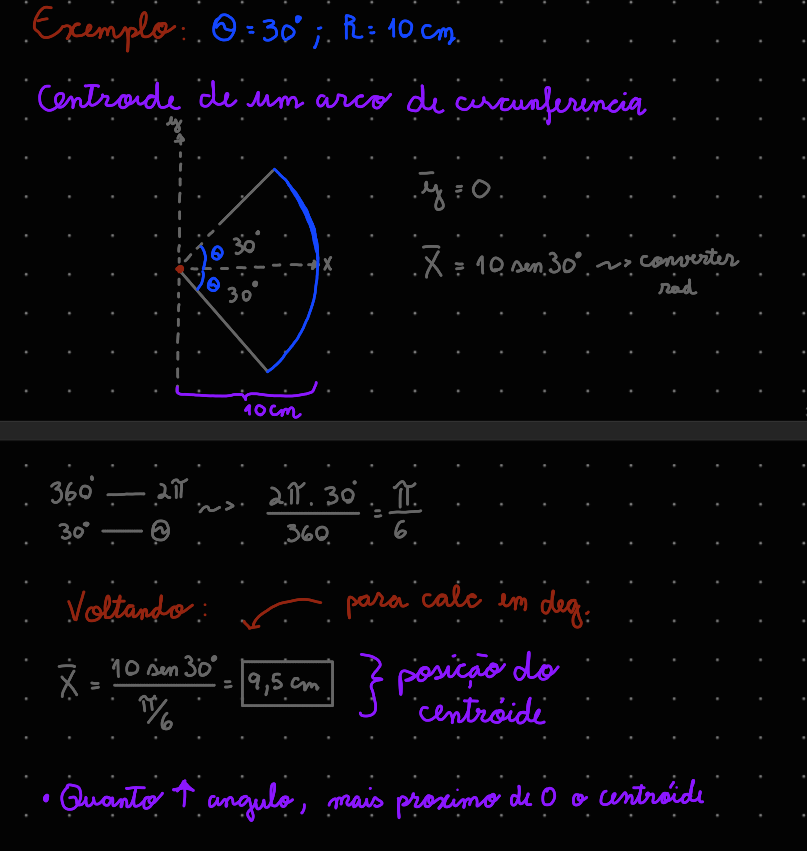 Exemplo: Θ = 30° ; R = 10 cm
Centroide de um arco de circunferencia
y
ȳ = 0
Θ 30°
x
X̄ = 10 sen 30° ~> converter
rad
Θ 30°
10 cm
360° — 2π ~> 2π . 30° / 360 = π / 6
30° — Θ
Voltando: para calc em deg.
X̄ = 10 sen 30° / π/6 = 9,5 cm } posição do
centróide
• Quanto ↑ angulo, mais proximo de 0 o centróide